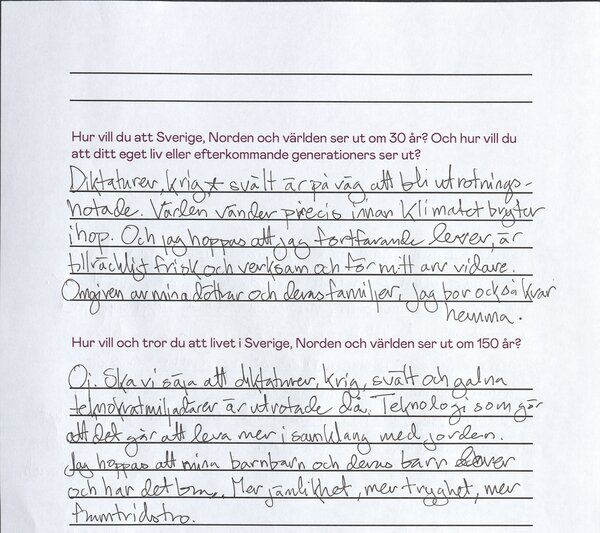 Hur vill du att Sverige, Norden och världen ser ut om 30 år? Och hur vill du
att ditt eget liv eller efterkommande generationers ser ut?
Diktaturer, krig + svält är på väg att bli utrotnings-
hotade. Världen vänder precis innan klimatet bryter
ihop. Och jag hoppas att jag fortfarande lever, är
tillräckligt frisk och verksam och för mitt arv vidare.
Omgiven av mina döttrar och deras familjer. Jag bor också kvar
hemma.
Hur vill och tror du att livet i Sverige, Norden och världen ser ut om 150 år?
Oj. Ska vi säga att diktaturer, krig, svält och galna
teknokratmiljardärer är utrotade då. Teknologi som gör
att det går att leva mer i samklang med jorden.
Jag hoppas att mina barnbarn och deras barn lever
och har det bra. Mer jämlikhet, mer trygghet, mer
framtidstro.